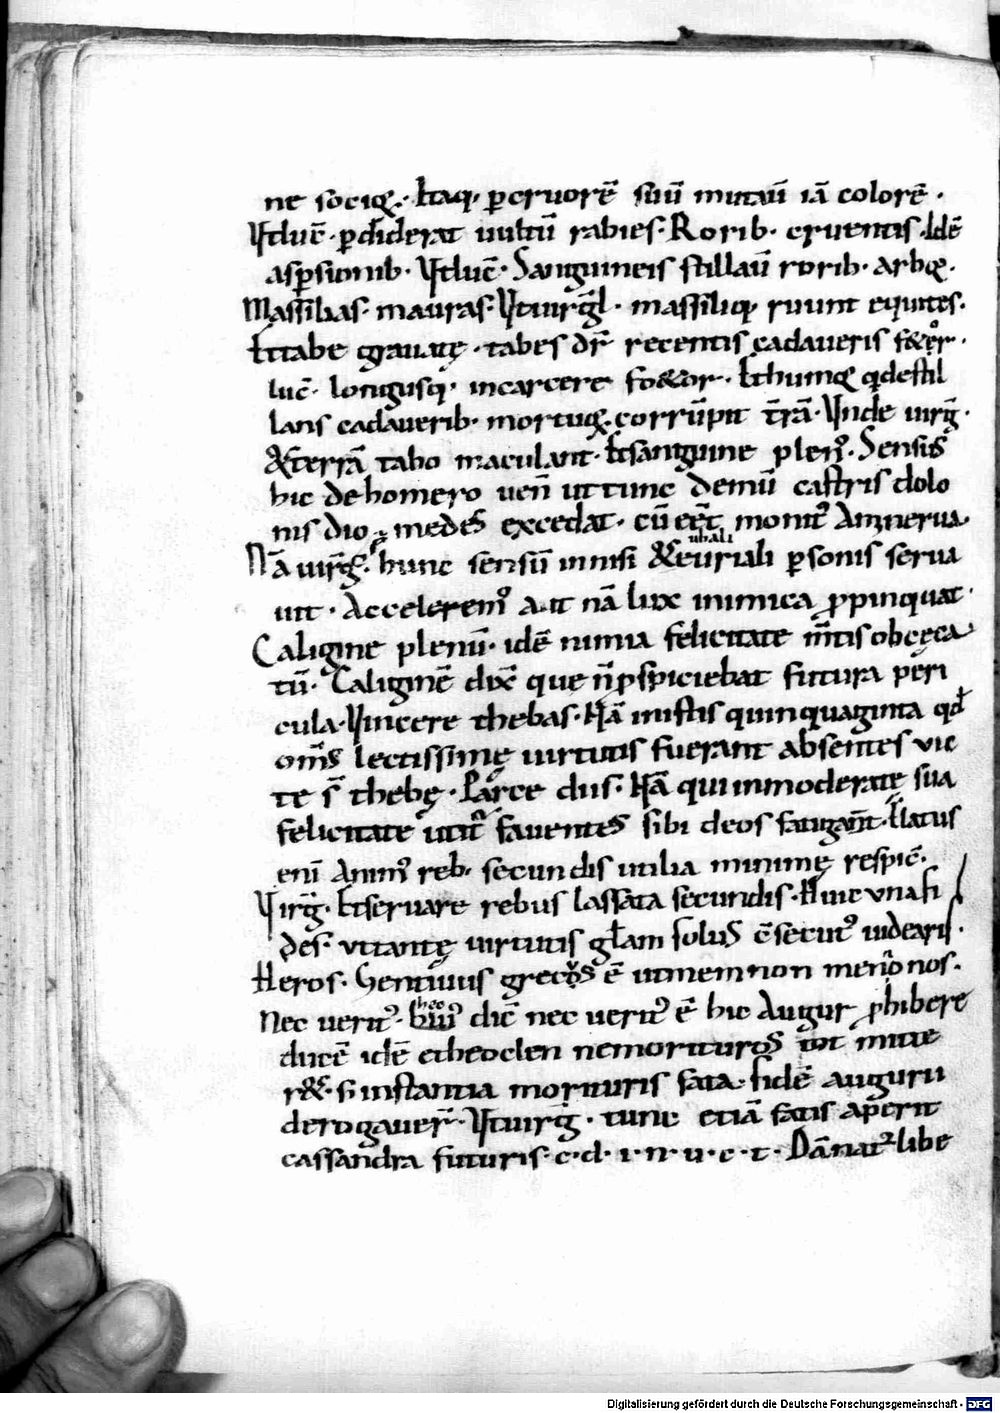 ne socię. Itaq. ꝑcruorē suū mutaū iā colorē.
Vtluc̄. ꝑdiderat uultū rabies. Rorib. cruentis. Idē
asꝑsionib. Vtluc̄. Sanguineis stillaū rorib. arbǫ.
Massilias. mauras. Vtuirg̅l. massiliq. ruunt equites.
Et tabe grauatę. tabes dr̄ recentis cadaueris f&or
luc̄. longusq. incarcere fo&or. Et humǫ qdestil
lans cadauerib. mortuǫ. corrūpit t̄rā. Vnde uirg̅.
&terrā tabo maculant. Etsanguine plen⁹. Sensus
hic dehomero uen̄ ut tunc demū castris dolo
nis dio medes excedat. cū eēt monit⁹ Aminerua.
Nā uirg̅. hunc sensū innisi &euriali ꝑsonis serua
uit. Accelerem⁹ a it nā lux inimica ꝓpinquat.
Caligine plenū. idē nimia felicitate m̄tis obcęca
tū. Caliginē dix̄ que n̄ ꝓspiciebat futura peri
cula. Vincere thebas. Nā inistis quinquaginta qđ
om̄s lectissimę uirtutis fuerant absentes vic
te s̄ thebę. Parce diis. Nā qui inmoderatę sua
felicitate utit̄ fauentes sibi deos fatigant. Elatus
enī Anim⁹ reb. secundis utilia minimę respic̄.
Virg̅. Et seruare rebus lassata secundis. Huic vna fi
des. vttantę uirtutis głam solus c̄secut⁹ uidearis.
Heros. Sentiuus grecos ē utmemnon memnonos.
Nec uerit⁹. dic̄ nec uerit⁹ ē hic Augur ꝓhibere
ducē idē etheoclen nemorituros tot mitte
r&. si instantia morituris fata. fidē augurii
derogauer̄. Vtuirg̅. tunc etiā fatis aperit
cassandra futuris. c. d. i. n. u. c. t. Dānat⁹ libe
Digitalisierung gefördert durch die Deutsche Forschungsgemeinschaft - DFG